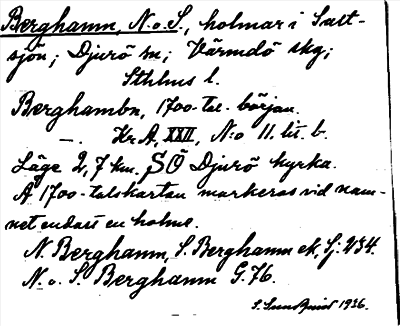 Berghamn, N. o. S., holmar i Salt-
sjön; Djurö sn; Värmdö skg;
Sthlms l.
Berghambn, 1700-tal. början.
—. Kr.A, XXII, N:o 11. lit. b.
Läge 2,7 km. SÖ Djurö kyrka.
Å 1700-talskartan markeras vid nam-
net endast en holme.
N. Berghamn, S. Berghamn ek, Sj. 234.
N. o. S. Berghamn G. 76.
S. Sundquist 1936.